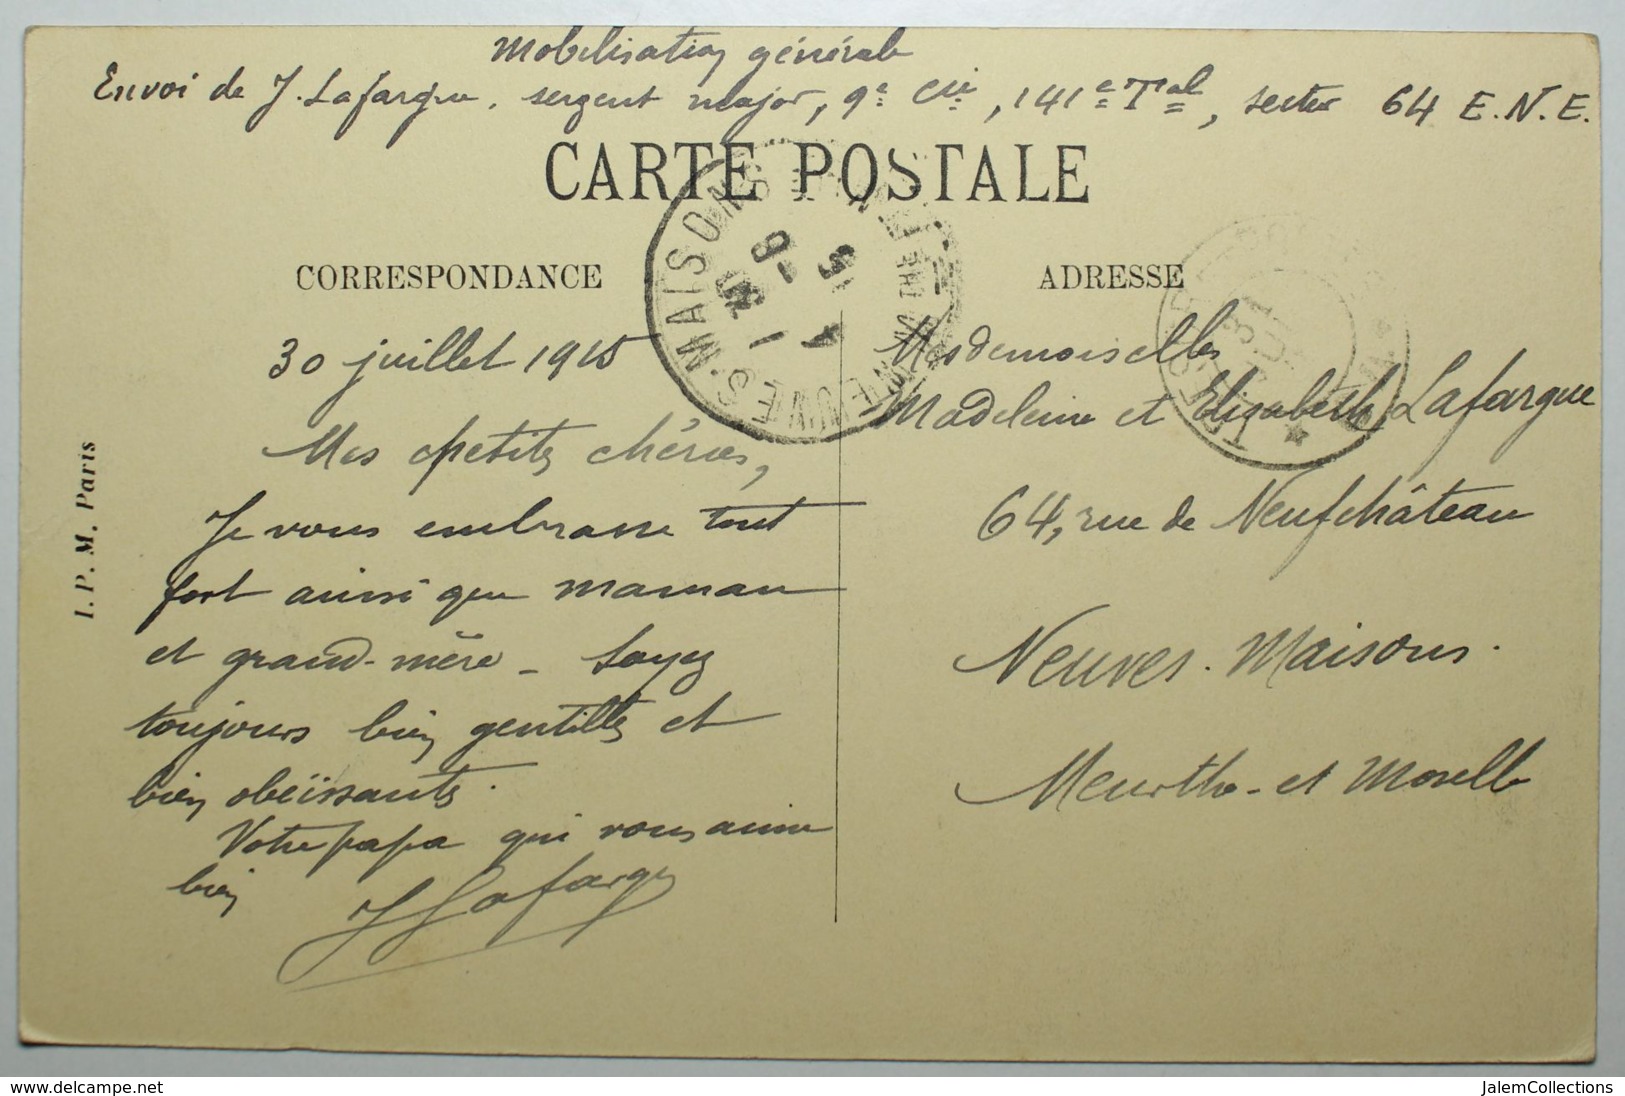 Mobilisation générale
Envoi de J. Lafargue, sergent major, 9e Cie, 141e Tal, secteur 64 E.N.E.
CARTE POSTALE
CORRESPONDANCE
ADRESSE
30 juillet 1915
Mes petites chéries,
Je vous embrasse tout
fort ainsi que maman
et grand-mère - Soyez
toujours bien gentilles et
bien obéïssantes.
Votre papa qui vous aime
bien
J Lafargue
Mesdemoiselles
Madeleine et Elisabeth Lafargue
64, rue de Neufchâteau
Neuves-Maisons.
Meurthe-et Moselle
I. P. M. Paris
NEUVES-MAISONS
delcampe.net
JalemCollections